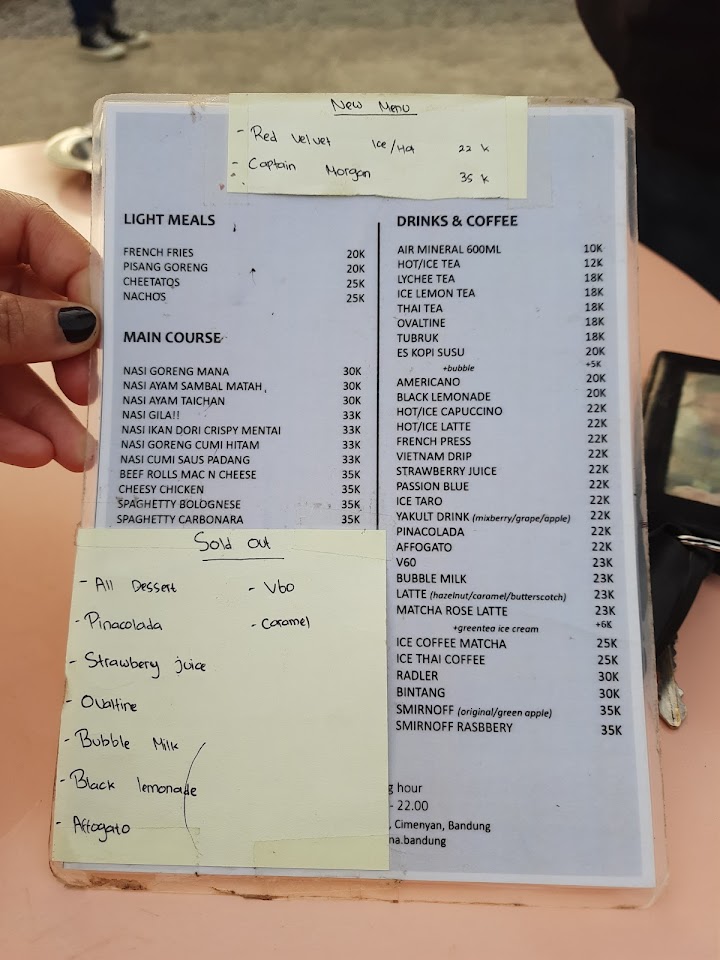 New Menu
- Red Velvet Ice/Hot 22 k
- Captain Morgan 35 k
LIGHT MEALS
FRENCH FRIES 20K
PISANG GORENG 20K
CHEETATOS 25K
NACHOS 25K
MAIN COURSE
NASI GORENG MANA 30K
NASI AYAM SAMBAL MATAH 30K
NASI AYAM TAICHAN 30K
NASI GILA!! 33K
NASI IKAN DORI CRISPY MENTAI 33K
NASI GORENG CUMI HITAM 33K
NASI CUMI SAUS PADANG 33K
BEEF ROLLS MAC N CHEESE 35K
CHEESY CHICKEN 35K
SPAGHETTY BOLOGNESE 35K
SPAGHETTY CARBONARA 35K
Sold Out
- All Dessert
- Pinacolada
- Strawbery juice
- Ovaltine
- Bubble Milk
- Black lemonade
- Affogato
- V60
- Caramel
DRINKS & COFFEE
AIR MINERAL 600ML 10K
HOT/ICE TEA 12K
LYCHEE TEA 18K
ICE LEMON TEA 18K
THAI TEA 18K
OVALTINE 18K
TUBRUK 18K
ES KOPI SUSU 20K
+bubble +5K
AMERICANO 20K
BLACK LEMONADE 20K
HOT/ICE CAPUCCINO 22K
HOT/ICE LATTE 22K
FRENCH PRESS 22K
VIETNAM DRIP 22K
STRAWBERRY JUICE 22K
PASSION BLUE 22K
ICE TARO 22K
YAKULT DRINK (mixberry/grape/apple) 22K
PINACOLADA 22K
AFFOGATO 22K
V60 23K
BUBBLE MILK 23K
LATTE (hazelnut/caramel/butterscotch) 23K
MATCHA ROSE LATTE 23K
+greentea ice cream +6K
ICE COFFEE MATCHA 25K
ICE THAI COFFEE 25K
RADLER 30K
BINTANG 30K
SMIRNOFF (original/green apple) 35K
SMIRNOFF RASBBERY 35K
g hour
- 22.00
, Cimenyan, Bandung
na.bandung